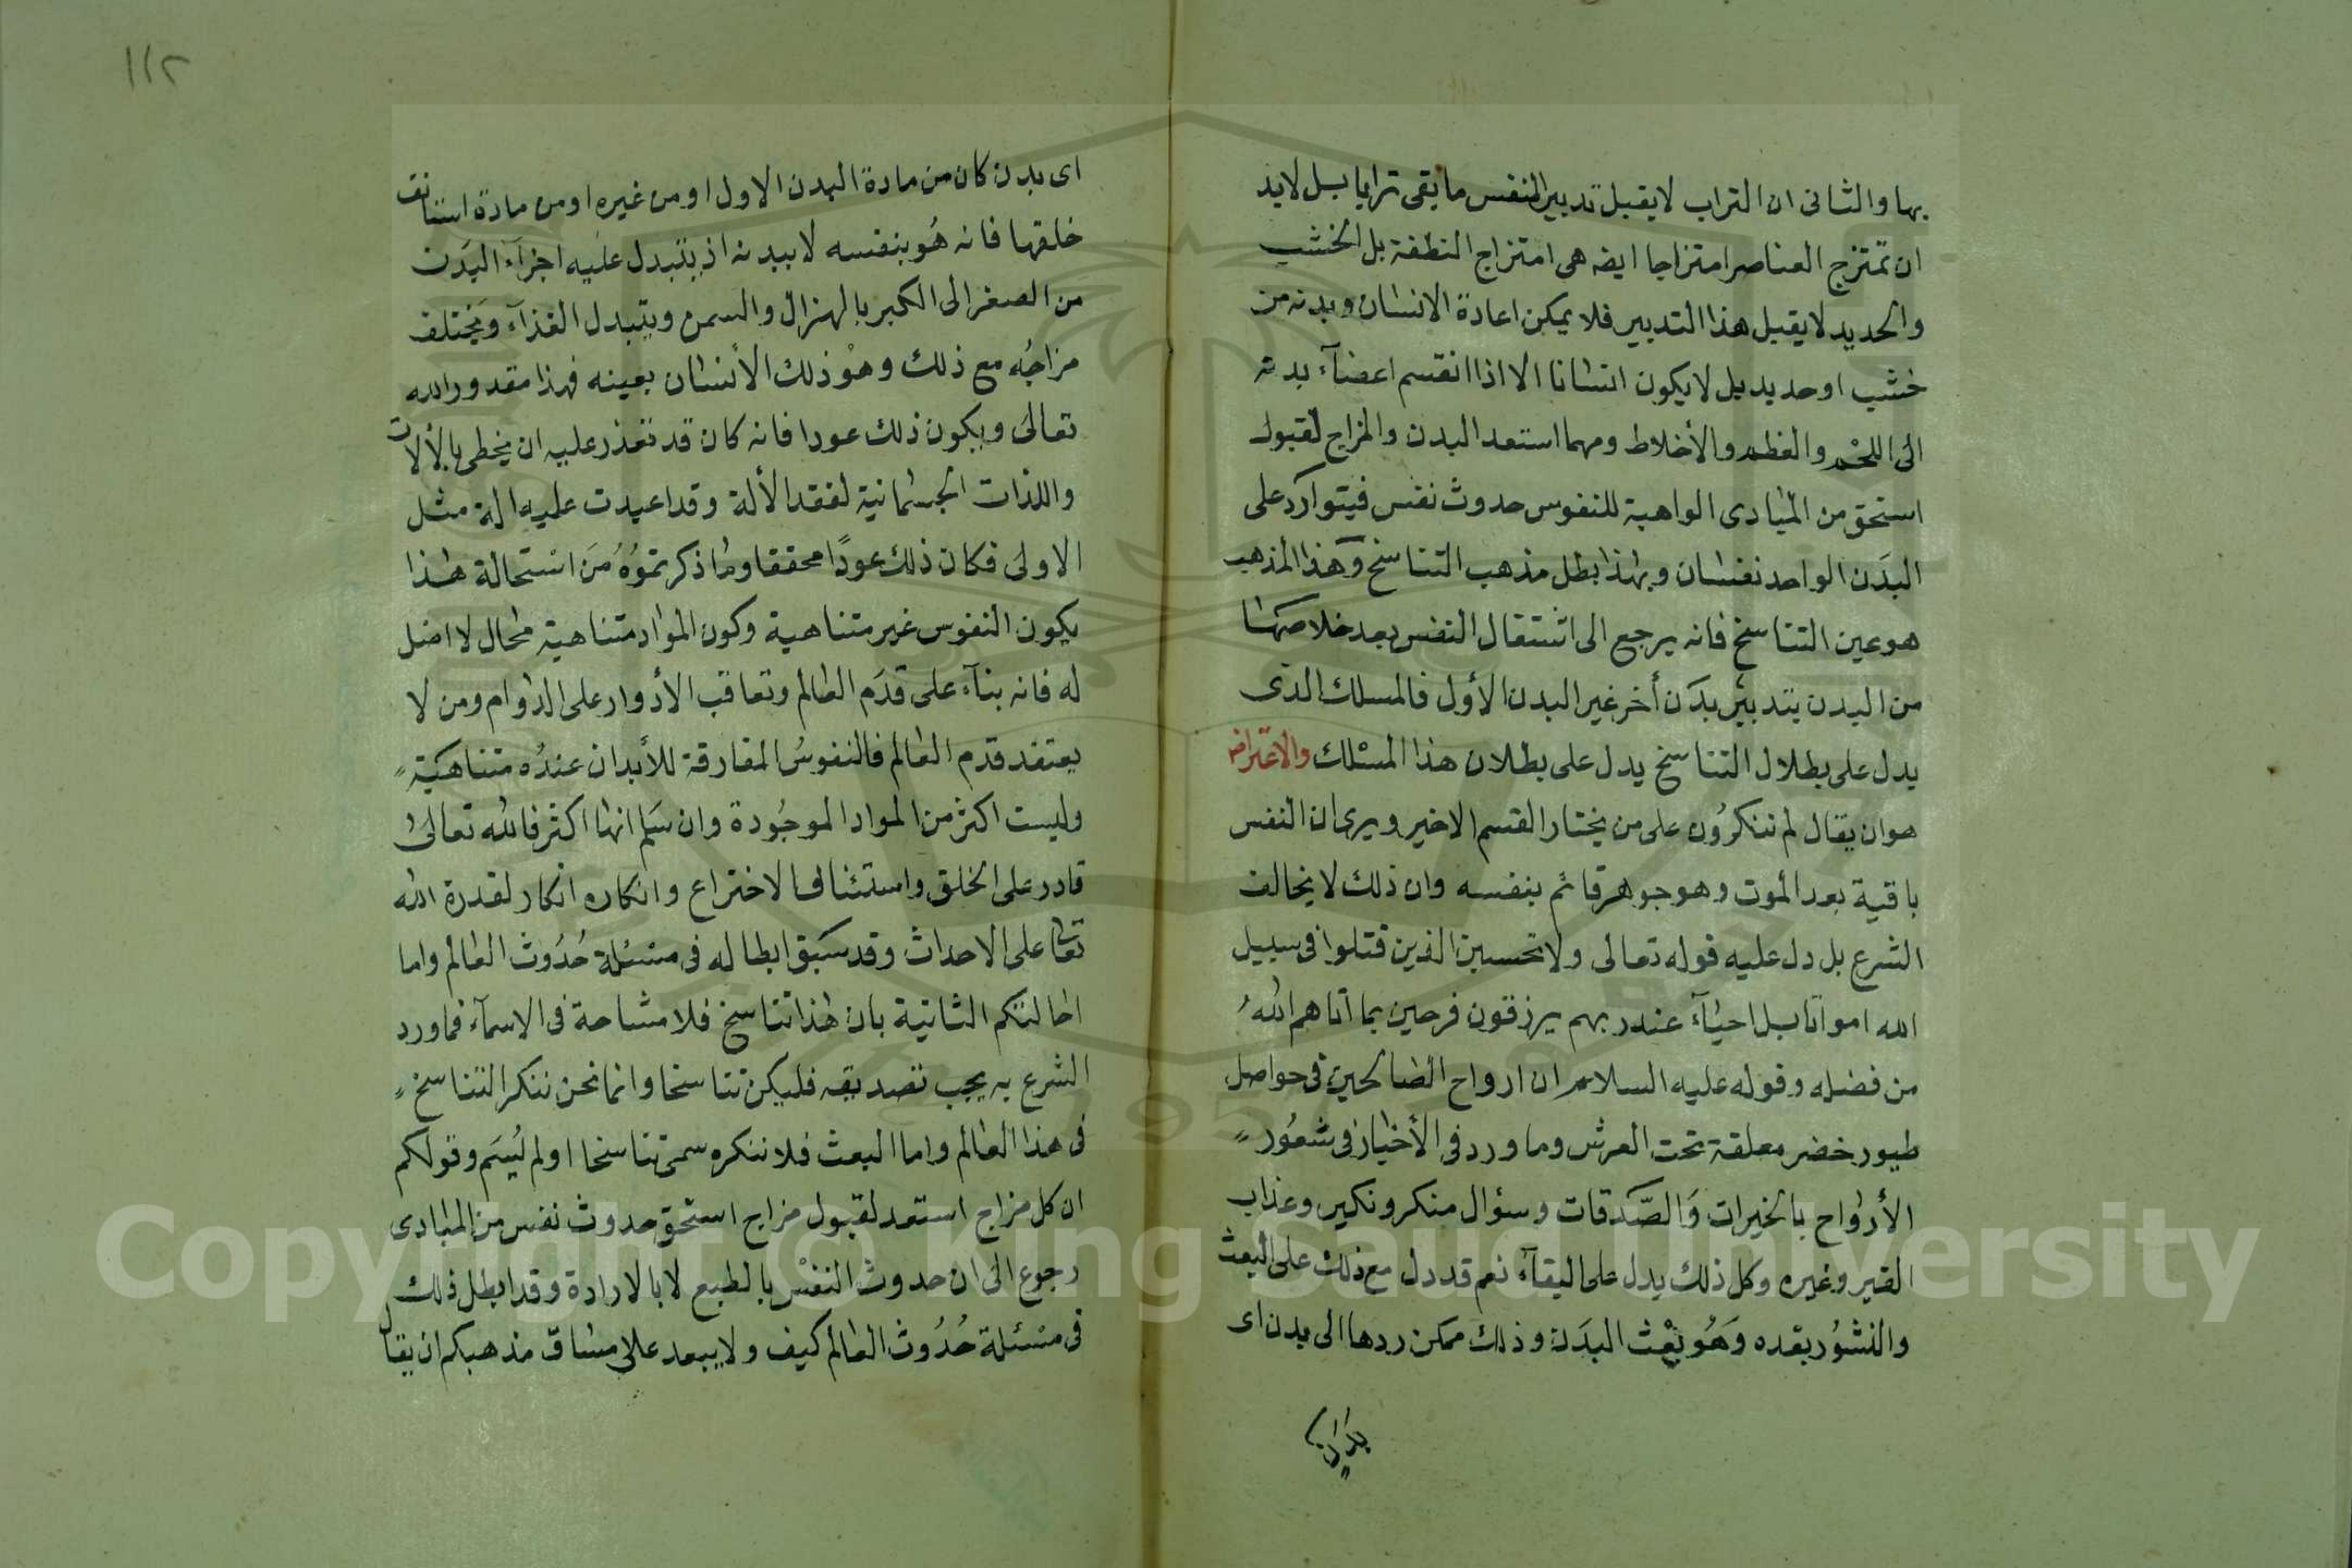 بها والثانى ان التراب لا يقبل تدبير النفس ما بقى ترابا بل لابد
ان تمتزج العناصر امتزاجا ايضه هى امتزاج النطفة بل الخشب
والحديد لا يقبل هذا التدبير فلا يمكن اعادة الانسان وبدنه من
خشب او حديد بل لا يكون انسانا الا اذا انقسم اعضآء بدنه
الى اللحم والعظم والأخلاط ومهما استعد البدن والمزاج لقبول
استحق من المبادى الواهبة للنفوس حدوث نفس فيتوارد على
البدن الواحد نفسان وبهذا بطل مذهب التناسخ وهذا المذهب
هو عين التناسخ فانه يرجع الى اشتقال النفس بعد خلاصها
من البدن بتدبير بدن أخر غير البدن الأول فالمسلك الذى
يدل على بطلال التناسخ يدل على بطلان هذا المسلك والاعتراض
هو ان يقال لم تنكرون على من يختار القسم الاخير ويرى ان النفس
باقية بعد الموت وهو جوهر قائم بنفسه وان ذلك لا يخالف
الشرع بل دل عليه قوله تعالى ولا تحسبن الذين قتلوا فى سبيل
الله امواتا بل احيآء عند ربهم يرزقون فرحين بما آتاهم الله
من فضله وقوله عليه السلام ان ارواح الصالحين فى حواصل
طيور خضر معلقة تحت العرش وما ورد فى الأخبار فى شعور
الأرواح بالخيرات والصدقات وسؤال منكر ونكير وعذاب
القبر وغيره وكل ذلك يدل على البقآء نعم قد دل مع ذلك على البعث
والنشور بعده وهو بعث البدن وذلك ممكن ردها الى بدن اى
١١٢
اى بدن كان من مادة البدن الاول او من غيره او من مادة استانف
خلقها فانه هو بنفسه لا ببدنه اذ يتبدل عليه اجزآء البدن
من الصغر الى الكبر بالهزال والسمن ويتبدل الغذآء ويختلف
مزاجه مع ذلك وهو ذلك الأنسان بعينه فهذا مقدور الله
تعالى ويكون ذلك عودا فانه كان قد تعذر عليه ان يخطى بالألات
واللذات الجسمانية لفقد الألة وقد اعيدت عليه الة مثل
الاولى فكان ذلك عودًا محققا وما ذكرتموه من استحالة هذا
بكون النفوس غير متناهية وكون المواد متناهية محال لا اصل
له فانه بنآء على قدم العالم وتعاقب الأدوار على الدوام ومن لا
يعتقد قدم العالم فالنفوس المفارقة للأبدان عنده متناهية
وليست اكثر من المواد الموجودة وان سلم انها اكثر فالله تعالى
قادر على الخلق واستئناف الاختراع وانكاره انكار لقدرة الله
تعا على الاحداث وقد سبق ابطاله فى مسئلة حدوث العالم واما
احالتكم الثانية بان هذا تناسخ فلا مشاحة فى الاسمآء فما ورد
الشرع به يجب تصديقه فليكن تناسخا وانما نحن ننكر التناسخ
فى هذا العالم واما البعث فلا ننكره سمى تناسخا او لم يُسَم وقولكم
ان كل مزاج استعد لقبول مزاج استحق حدوث نفس من المبادى
رجوع الى ان حدوث النفس بالطبع لا بالارادة وقد ابطل ذلك
فى مسئلة حدوث العالم كيف ولا يبعد على مساق مذهبكم ان يقال
Copyright © King Saud University